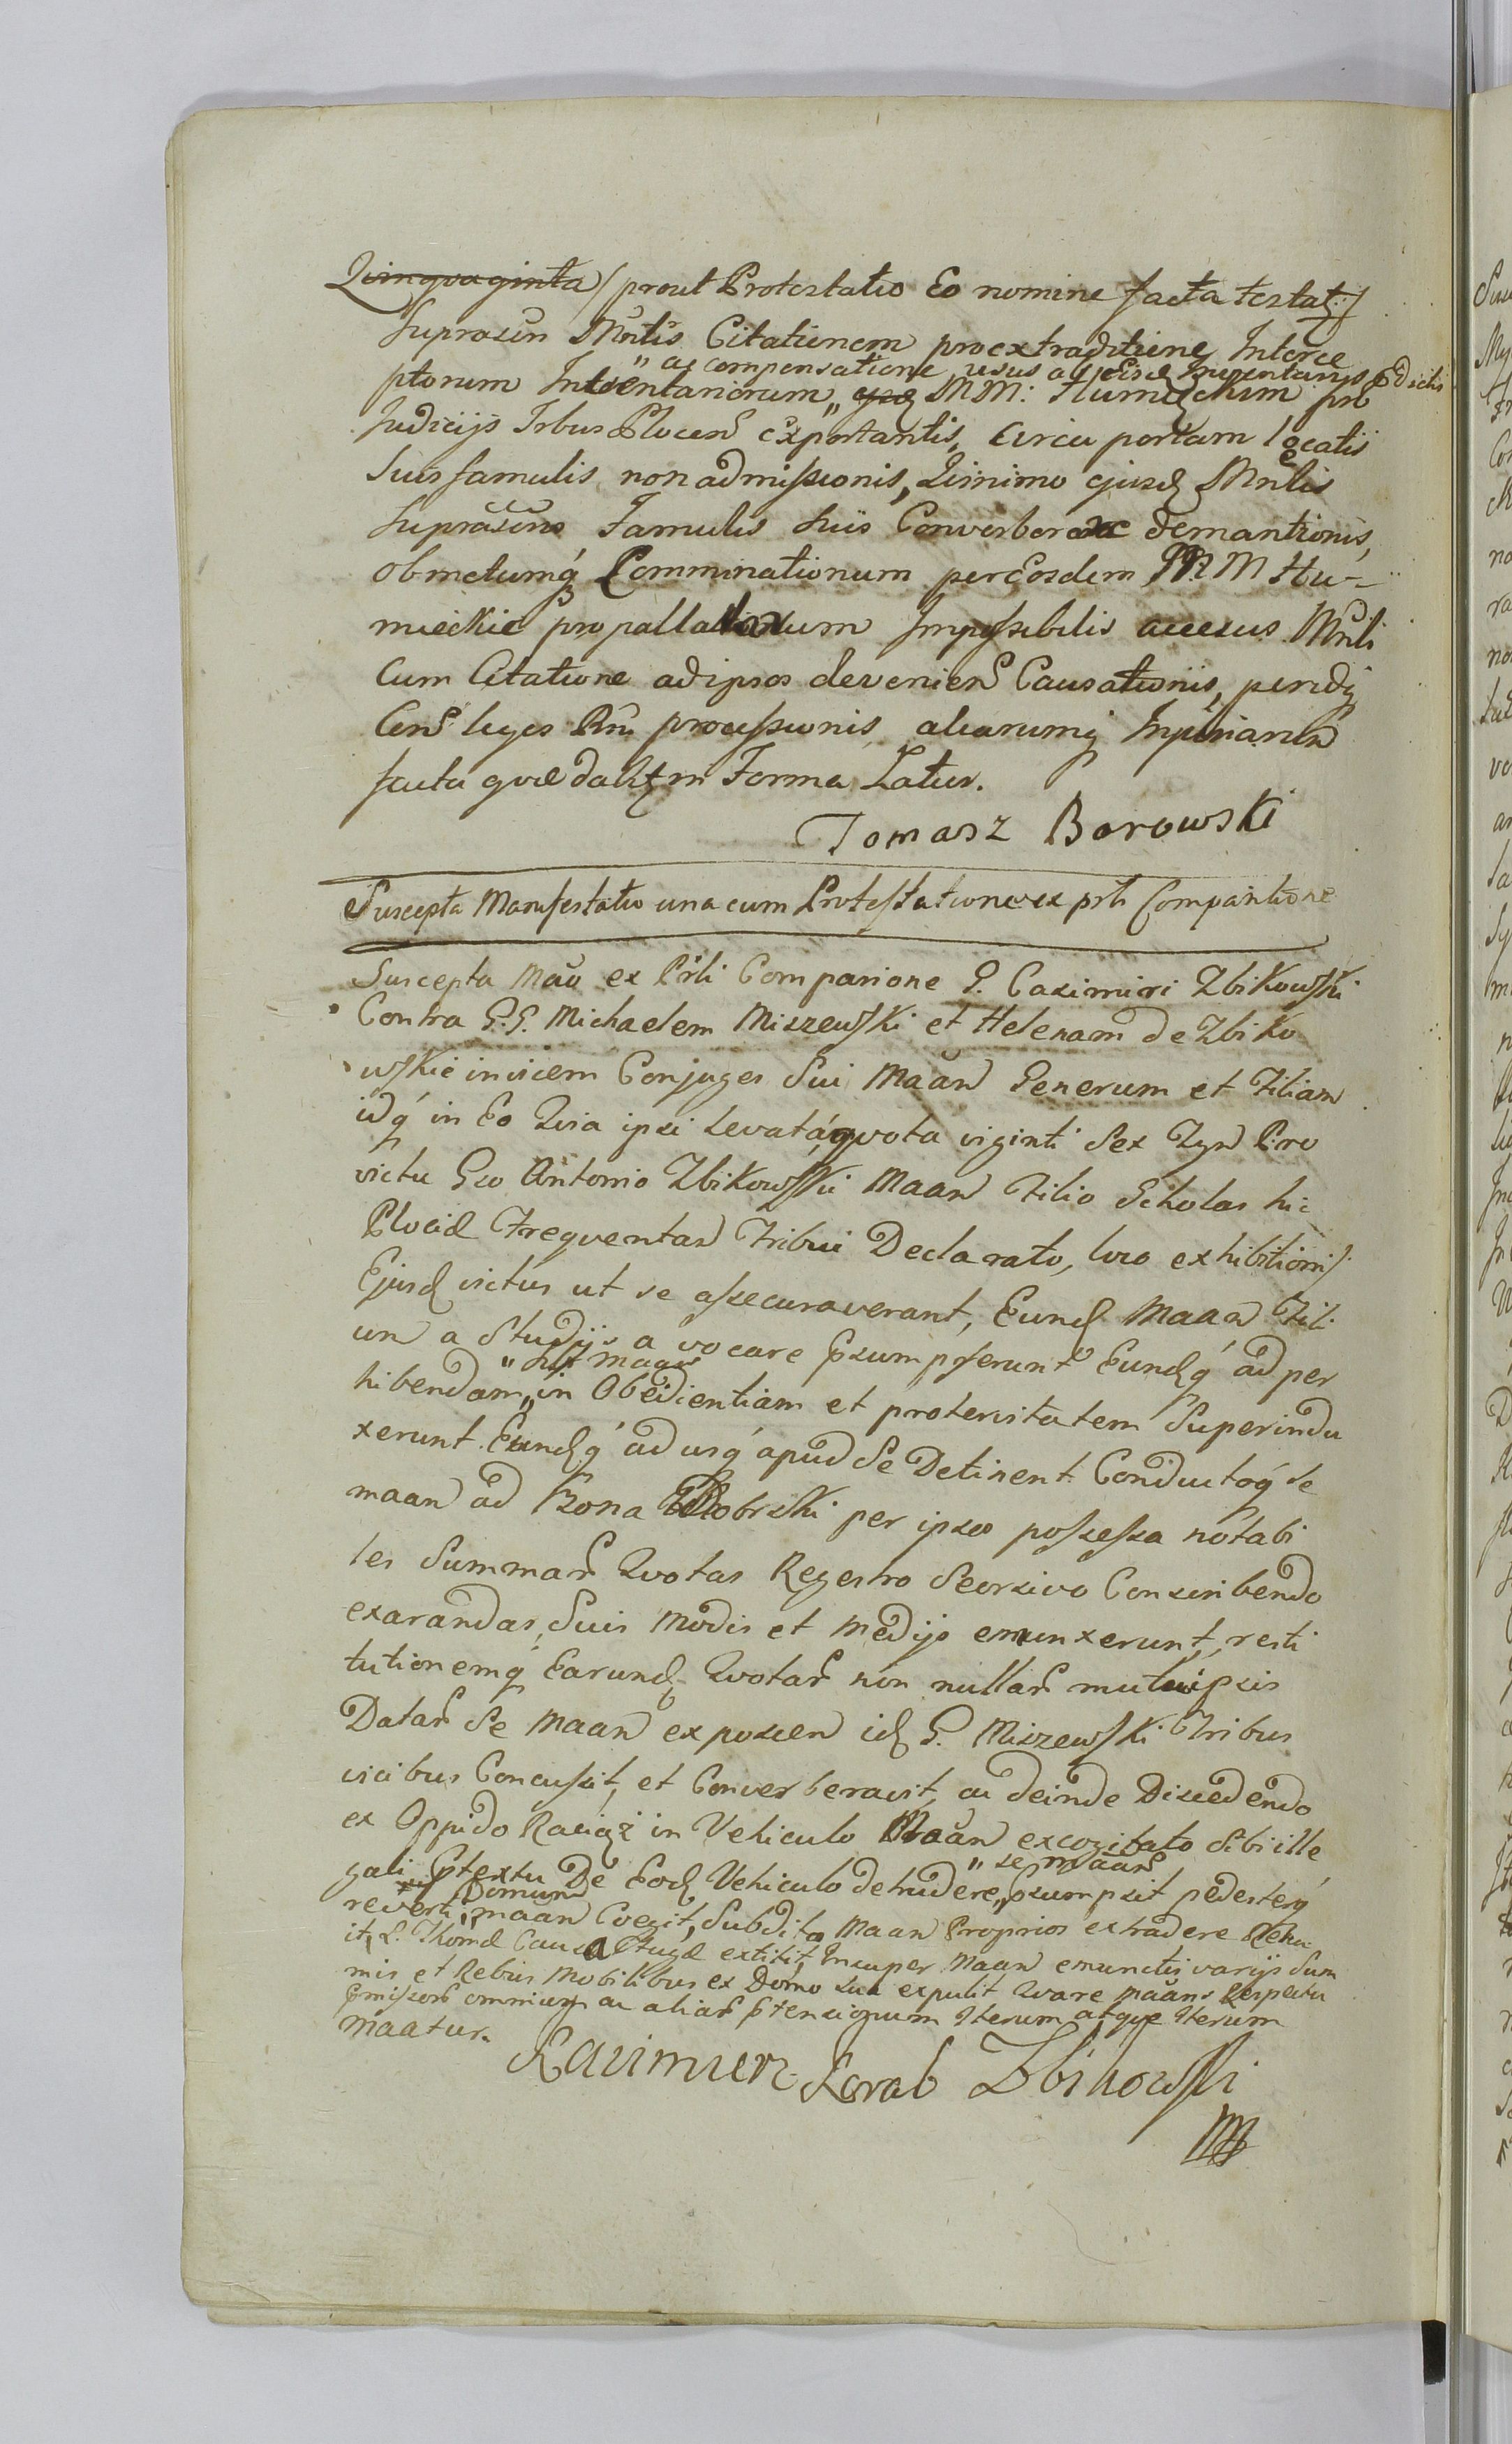 Quinquaginta / prout Protestatio Eo nomine facta testatʒ /
Suprascrĭ Mnłis Citationem pro extraditione Interce
" ac compensatione usus ab Eisd Inventarijs pdictis
ptorum Inventariorum " MM: Humięckim pro
Judicijs Trbus Plocens exportantis, circa portam locatis
Suis famulis non admissionis, Quinimo ejusd Mnłis
Suprascrĭ Famulis suis Converberac demantionis,
ob metumq Comminationum per Eosdem MM Hu-
mieckie propallatarum Impossibilis accesus Mnłi
Cum Citatione ad ipsos devenien Causationis,
Cens leges Rni processionis aliarumq Injuriarum
facta quæ dabitʒ in Forma Latius.
Tomasz Borowski
Suscepta Manifestatio una cum Protestatione ex prli Comparitione
Suscepta Mão ex Prłi Comparione G. Casimiri Zbikowski
Contra G.G. Michaelem Miszewski et Helenam de Zbiko
wskie invicem Conjuges Sui Maan Generum et Filiam
idq in Eo Quia ipsi levatá quota viginti Sex Zyn Pro
victu Gso Antonio Zbikowski Maan Filio Scholas hic
Plociæ Frequentan Tribui Declarato, loco exhibitionis
Ejusd victus ut se assecuraverant, Eund Maan Fili
un a Studijs a vocare psumpserunt Eundq ad per
hibendam " in Obedientiam et protervitatem Superindu
xerunt Eundq ad usq apud Se Detinent Conductoq se
maan ad Bona Dobrski per ipsos possessa notabi
les Summar Quotas Regestro Seorsivo Conscribendo
exarandas, Suis modis et medijs emunxerunt, resti
tutionemq Earund Quotar non nullar mutuo ipsis
Datar Se Maan exposcen id G. Miszewski Tribus
vicibus Concussit, et Converberavit, ac deinde Discedendo
ex Oppido Raciąż in Vehiculo Maan excogitato Sibi ille
" se maan
gali ptextu De Eod Vehiculo detrudere " psumpsit pedesterq
Domum
reverti " maan Coegit, Subdita Maan Proprios extradere Renu
it, L. Thomæ Causa Fugæ extitit, Insuper Maan emunctis varijs Sum
mis et Rebus Mobilibus ex Domo sua expulit Quare maans Respectu
pmissor omnium ac aliar ptensionum Iterum atque Iterum
Maatur.
Kazimierz Korab Zbikowski